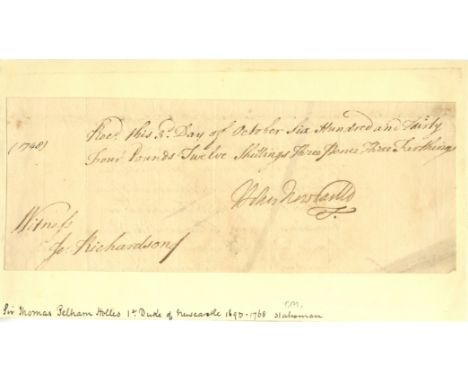 Recd. this 3d. Day of October Six Hundred and Thirty
(1748)
Four Pounds Twelve Shillings Three Pence Three Farthings
Holles Newcastle
Witness
Jo: Richardson
Sir Thomas Pelham Holles 1st Duke of Newcastle 1693-1768 statesman